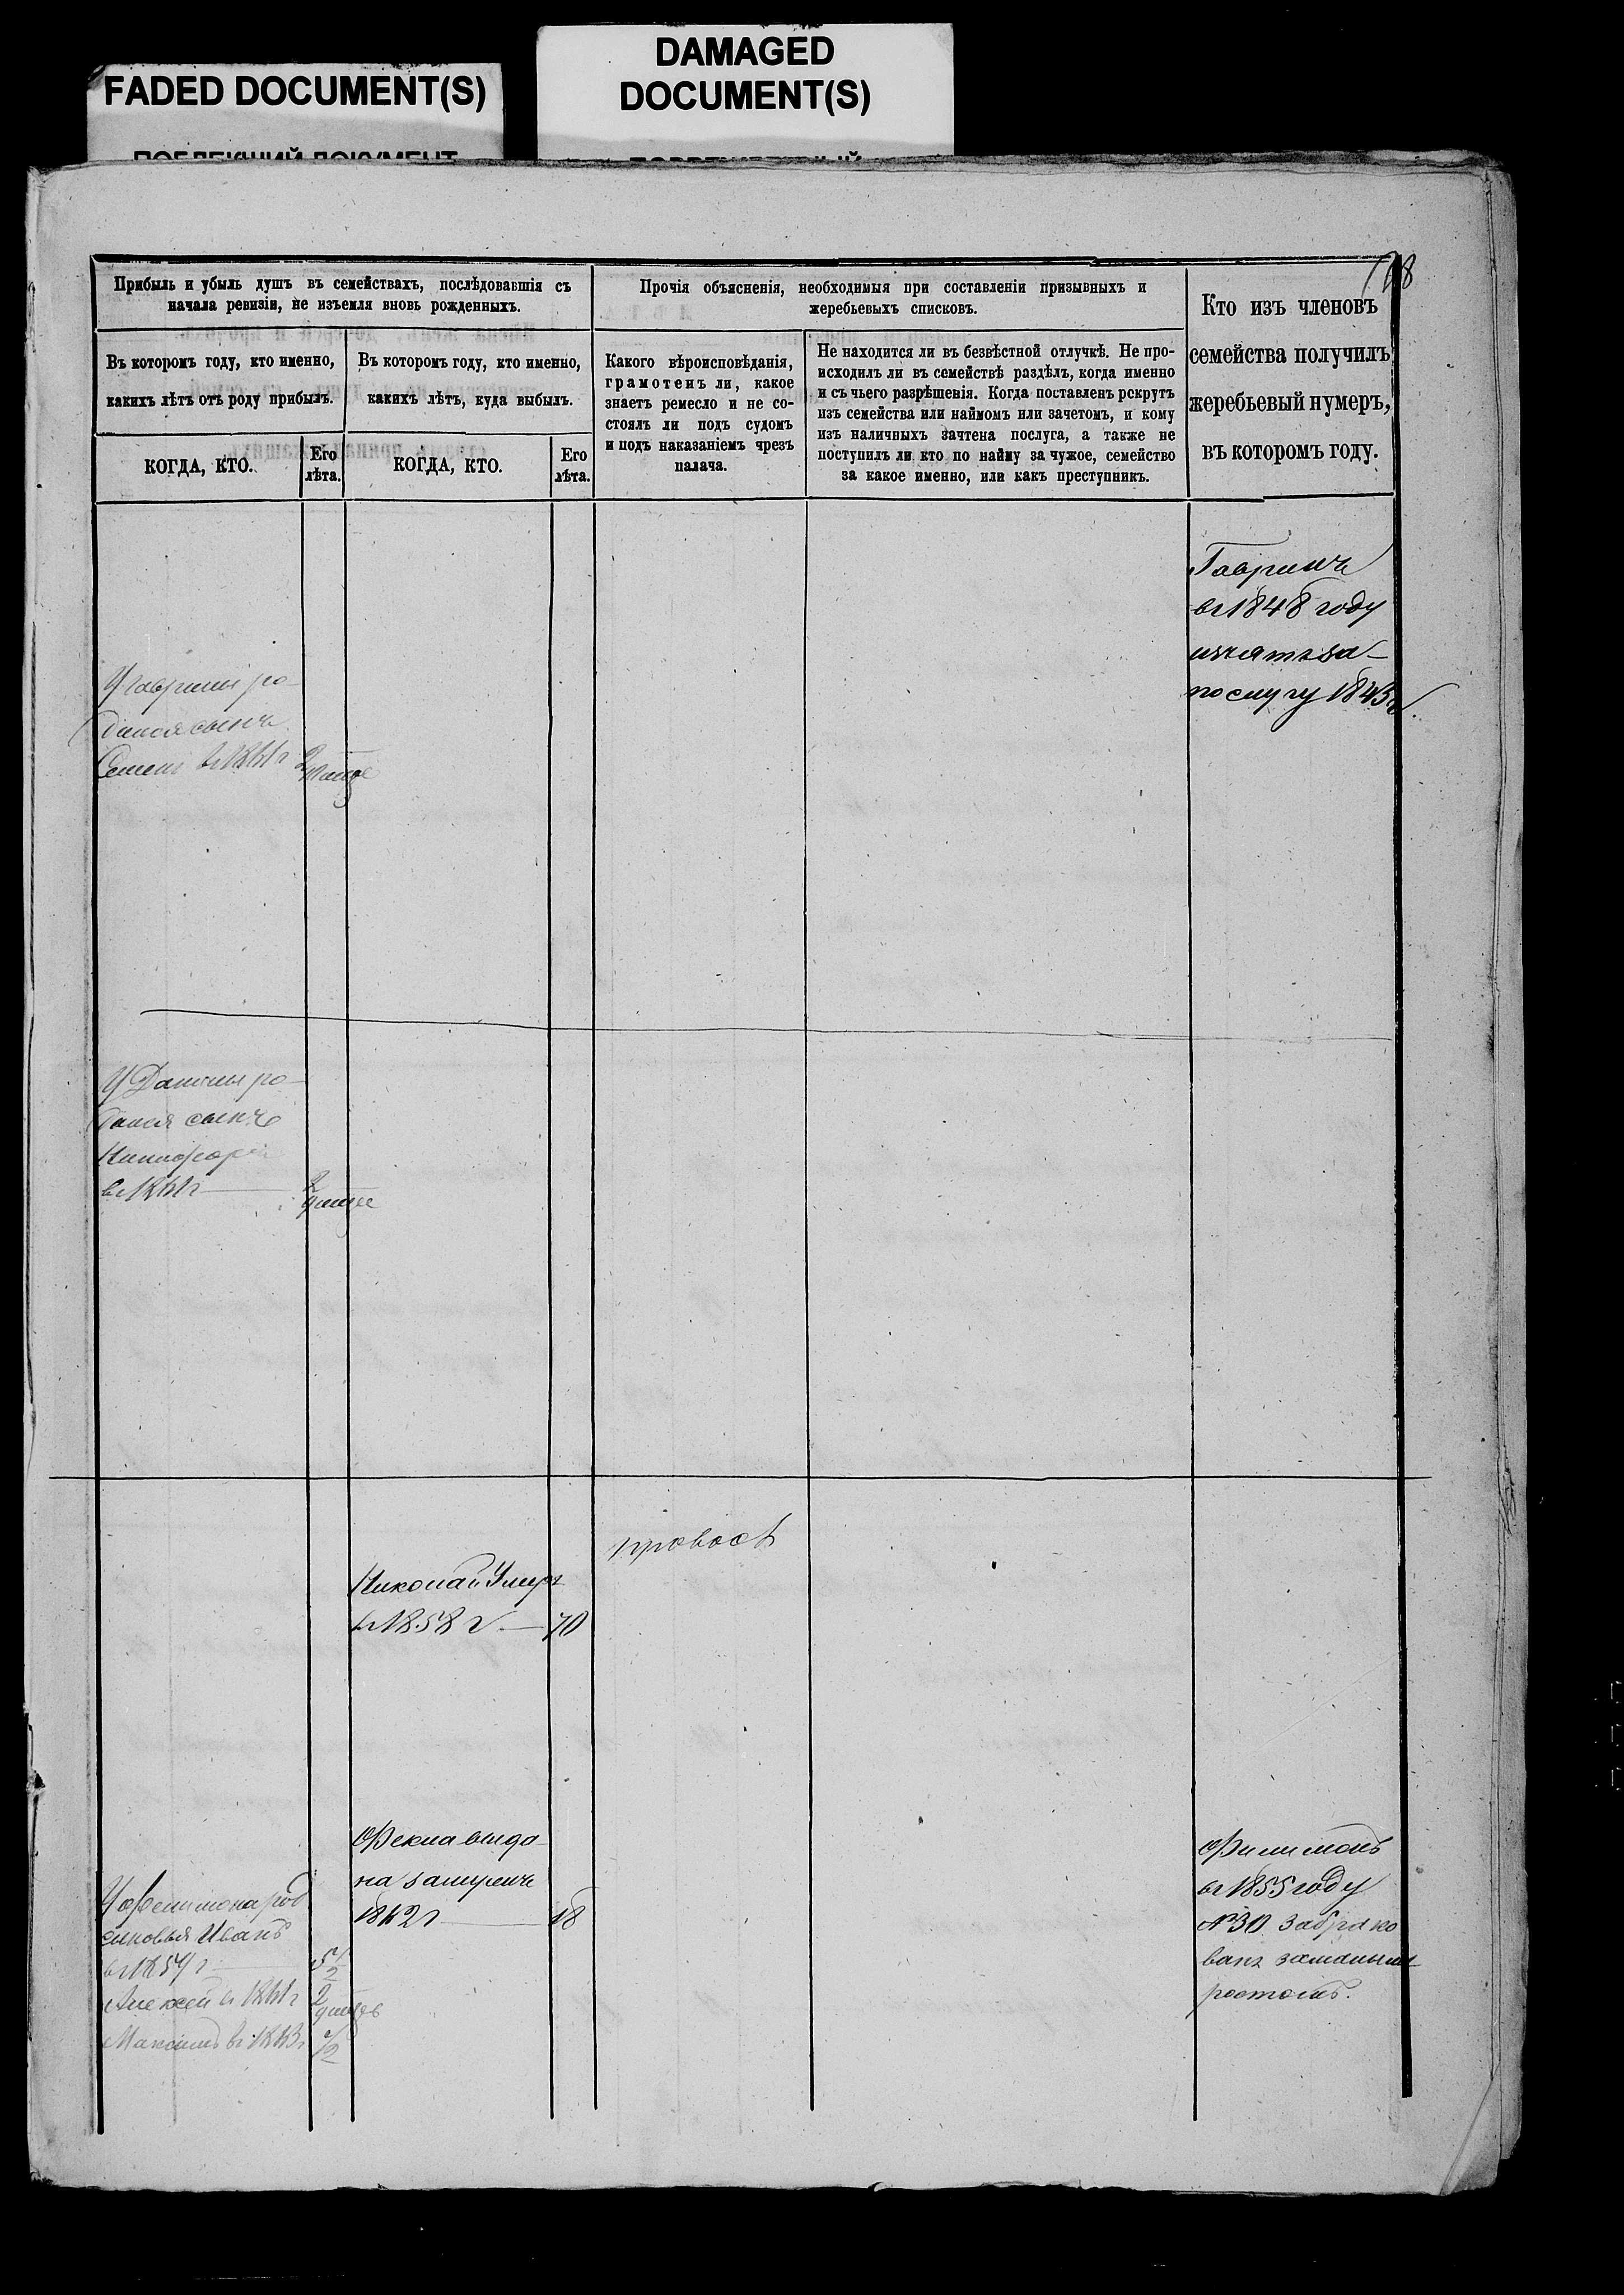 FADED DOCUMENT(S)
DAMAGED
DOCUMENT(S)
Прибыль и убыль душъ въ семействахъ, послѣдовавшія съ
начала ревизіи, не изъемля вновь рожденныхъ.
Въ которомъ году, кто именно,
какихъ лѣтъ отъ роду прибылъ.
КОГДА, КТО.
Его
лѣта.
Въ которомъ году, кто именно,
какихъ лѣтъ, куда выбылъ.
КОГДА, КТО.
Его
лѣта.
Прочія объясненія, необходимыя при составленіи призывныхъ и
жеребьевыхъ списковъ.
Какого вѣроисповѣданія,
грамотенъ ли, какое
знаетъ ремесло и не со-
стоялъ ли подъ судомъ
и подъ наказаніемъ чрезъ
палача.
Не находится ли въ безвѣстной отлучкѣ. Не про-
исходилъ ли въ семействѣ раздѣлъ, когда именно
и съ чьего разрѣшенія. Когда поставленъ рекрутъ
изъ семейства или наймомъ или зачетомъ, и кому
изъ наличныхъ зачтена послуга, а также не
поступилъ ли кто по найму за чужое, семейство
за какое именно, или какъ преступникъ.
Кто изъ членовъ
семейства получилъ
жеребьевый нумеръ,
въ которомъ году.
Гаврилъ
въ 1848 году
изъятъ за
послугу 1843г.
У Гаврилы ро-
дился сынъ
Семенъ въ 1861г 2
У Данилы ро-
дился сынъ
Никифоръ
въ 1861г 2
правосл
Николай Умеръ
въ 1858 г — 70
Фекла выда
на замужъ
1862г — 18
У Филимона род
сыновья Иванъ
въ 1857г 5 1/2
Алексей въ 1861г 2
Максимъ въ 1863г 1/2
Филимонъ
въ 1855 году
№30 забрако
ванъ за малымъ
ростомъ.